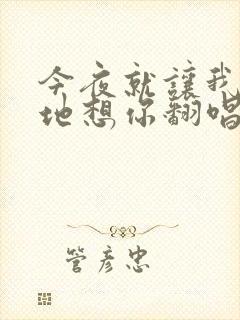 今夜就讓我
地想你翻唱
管彥忠